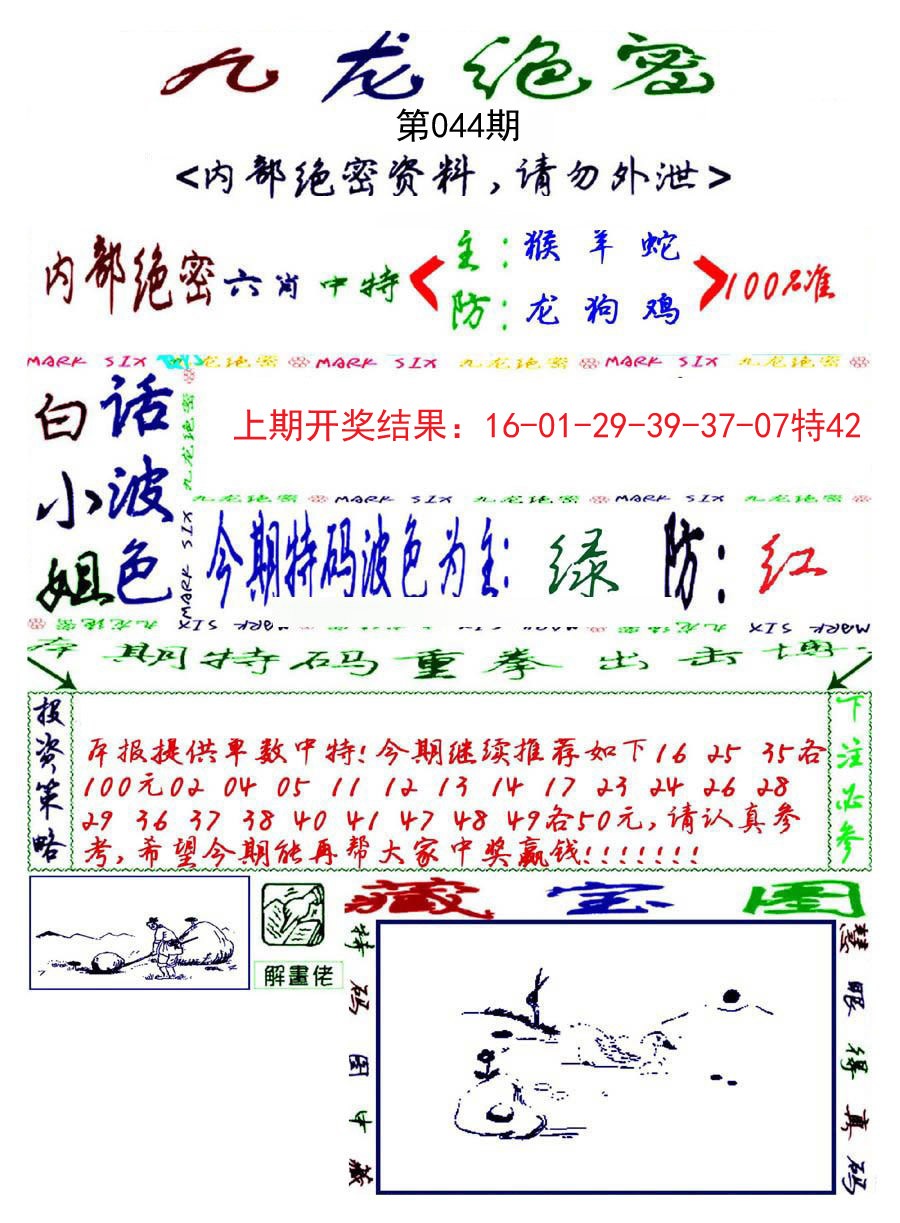 九龙绝密
第044期
<内部绝密资料，请勿外泄>
内部绝密六肖中特
主：猴 羊 蛇
防：龙 狗 鸡
100%准
MARK SIX 九龙绝密 MARK SIX 九龙绝密 MARK SIX 九龙绝密
白小姐
话波色
九龙绝密
MARK SIX
上期开奖结果：16-01-29-39-37-07特42
九龙绝密 MARK SIX 九龙绝密 MARK SIX 九龙绝密
今期特码波色为主：绿 防：红
九龙绝密 MARK SIX 九龙绝密 MARK SIX 九龙绝密 MARK SIX
本期特码重拳出击博
投资策略
本报提供单数中特！今期继续推荐如下16 25 35各
100元02 04 05 11 12 13 14 17 23 24 26 28
29 36 37 38 40 41 47 48 49各50元，请认真参
考，希望今期能再帮大家中奖赢钱！！！！！！！
下注必参
解畫佬
藏宝图
特码图中藏
慧眼得真码